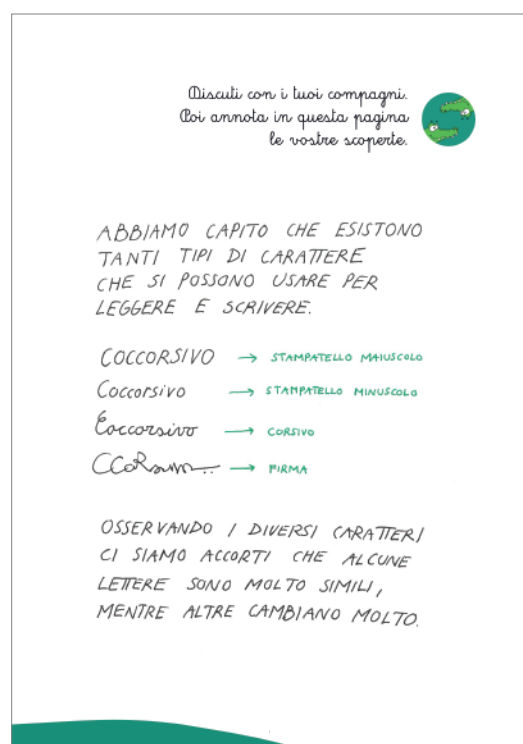 Discuti con i tuoi compagni.
Poi annota in questa pagina
le vostre scoperte.
ABBIAMO CAPITO CHE ESISTONO
TANTI TIPI DI CARATTERE
CHE SI POSSONO USARE PER
LEGGERE E SCRIVERE.
COCCORSIVO → STAMPATELLO MAIUSCOLO
Coccorsivo → STAMPATELLO MINUSCOLO
Coccorsivo → CORSIVO
→ FIRMA
OSSERVANDO I DIVERSI CARATTERI
CI SIAMO ACCORTI CHE ALCUNE
LETTERE SONO MOLTO SIMILI,
MENTRE ALTRE CAMBIANO MOLTO.